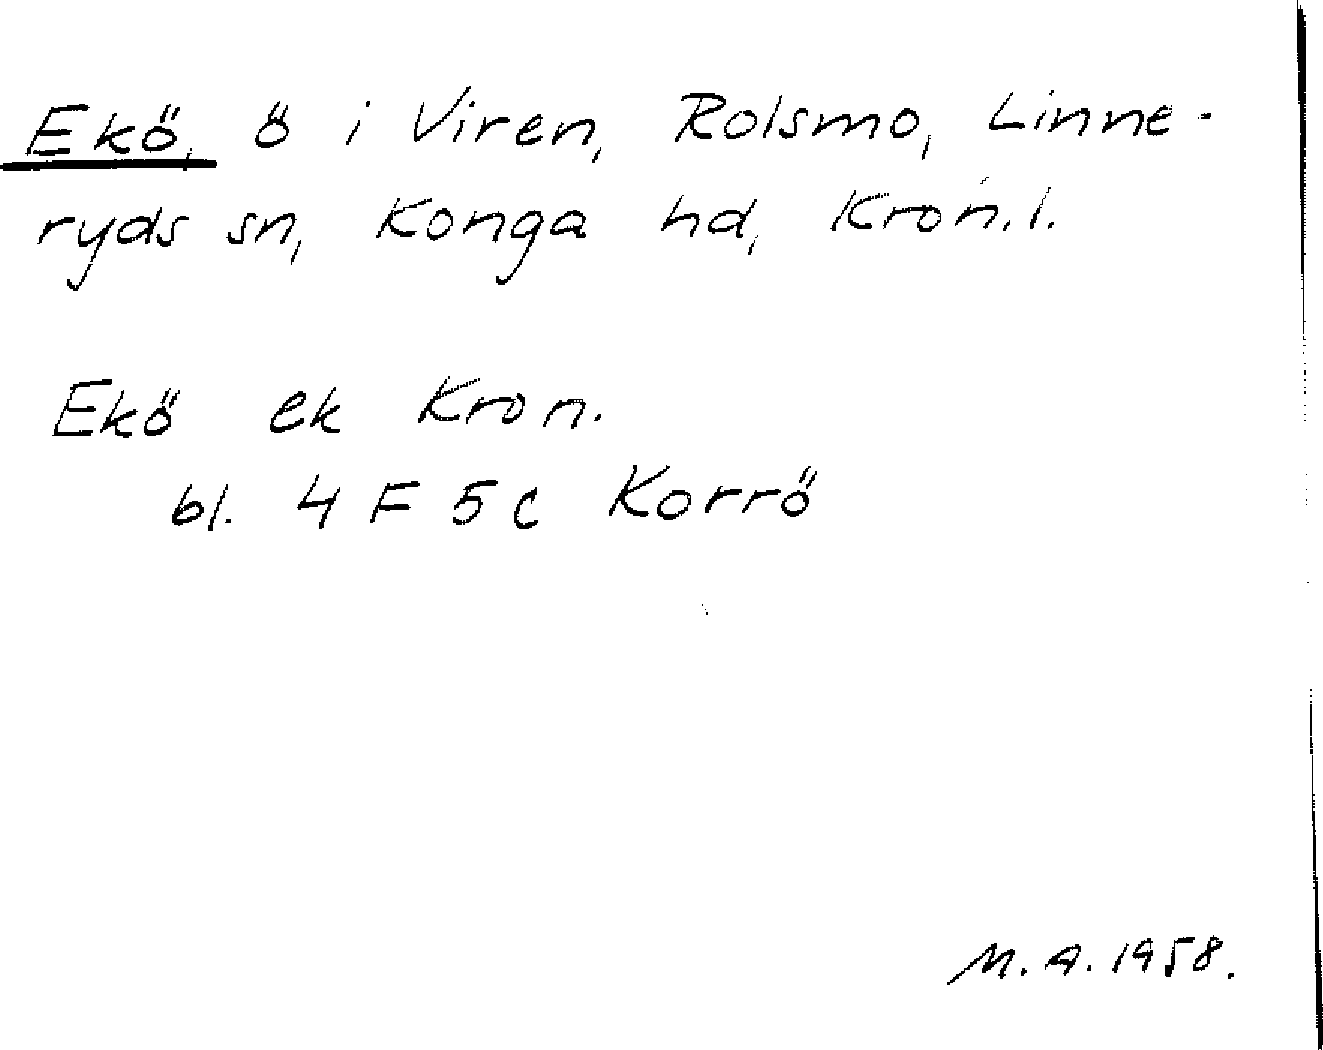 Ekö, ö i Viren, Rolsmo, Linne-
ryds sn, Konga hd, Kron.l.
Ekö ek Kron.
bl. 4 F 5 c Korrö
M.A. 1958.